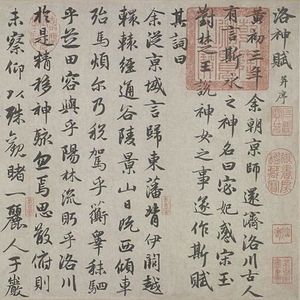 洛神賦 并序
黃初三年余朝京師還濟洛川古人
有言斯水之神名曰宓妃感宋玉
對楚王說神女之事遂作斯賦
其詞曰
余從京域言歸東藩背伊闕越
轘轅經通谷陵景山日既西傾車
殆馬煩爾乃稅駕乎蘅皋秣駟
乎芝田容與乎陽林流眄乎洛川
於是精移神駭忽焉思散俯則
未察仰以殊觀睹一麗人于巖